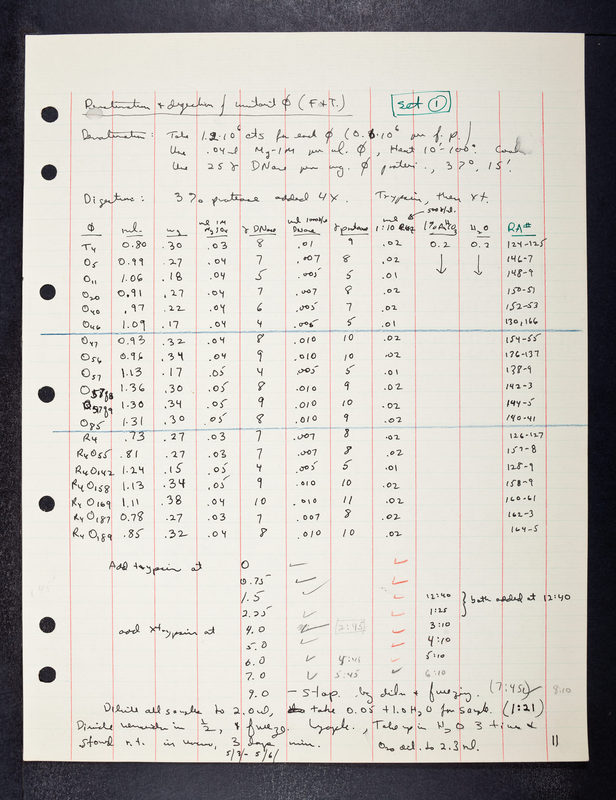 Denaturation & digestion of mutant Ø (F&T.) Set ①
Denaturation: Take 1.2·10⁶ cts for each Ø (0.6·10⁶ per f.p.)
Use .04 ml Mg-1M per ml. Ø, Heat 10'-100°. Cool
Use 25 γ DNase per mg. Ø protein., 37°, 15'.
Digestion: 3% protease added 4x. Trypsin, then xt.
500γ/ml.
Ø ml. mg ml 1M MgSO₄ γ DNase ml 1000γ/ DNase γ protease ml 1:10 H₂O
RA#
T4 0.80 .30 .03 8 .01 9 .02 0.2 0.2 124-125
O5 0.99 .27 .04 7 .007 8 .02 ↓ ↓ 146-7
O11 1.06 .18 .04 5 .005 5 .01 148-9
O20 0.91 .27 .04 7 .007 8 .02 150-51
O40 .97 .22 .04 6 .005 7 .02 152-53
O46 1.09 .17 .04 4 .005 5 .01 130,166
O47 0.93 .32 .04 8 .010 10 .02 154-55
O56 0.96 .34 .04 9 .010 10 .02 136-137
O57 1.13 .17 .05 4 .005 5 .01 138-9
O57g8 1.36 .30 .05 8 .010 9 .02 142-3
O57g9 1.30 .34 .05 9 .010 10 .02 144-5
O85 1.31 .30 .05 8 .010 9 .02 140-41
R4 .73 .27 .03 7 .007 8 .02 126-127
R4O55 .81 .27 .03 7 .007 8 .02 157-8
R4O142 1.24 .15 .05 4 .005 5 .01 128-9
R4O158 1.13 .34 .05 9 .010 10 .02 158-9
R4O169 1.11 .38 .04 10 .010 11 .02 160-61
R4O187 0.78 .27 .03 7 .007 8 .02 162-3
R4O189 .85 .32 .04 8 .010 10 .02 164-5
Add trypsin at 0 ✓ ✓
0.75 ✓ ✓
1.5 ✓ ✓ 12:40 } both added at 12:40
2.25 ✓ ✓ 1:25
add xtrypsin at 4.0 ✓ (2:45) ✓ 3:10
5.0 ✓ ✓ 4:10
6.0 ✓ 4:45 ✓ 5:10
7.0 ✓ 5:45 ✓ 6:10
9.0 - stop. by diln & freezing. (7:45) ✓ 8:10
Dilute all sample to 2.0 ml, take 0.05 + 1.0 H₂O for sample. (1:21)
Divide remainder in ½, & freeze. Lyoph., Take up in H₂O 3 times &
stand r.t. in vacuo, 3 days min. One del. to 2.3 ml.
5/3 - 5/6/
11